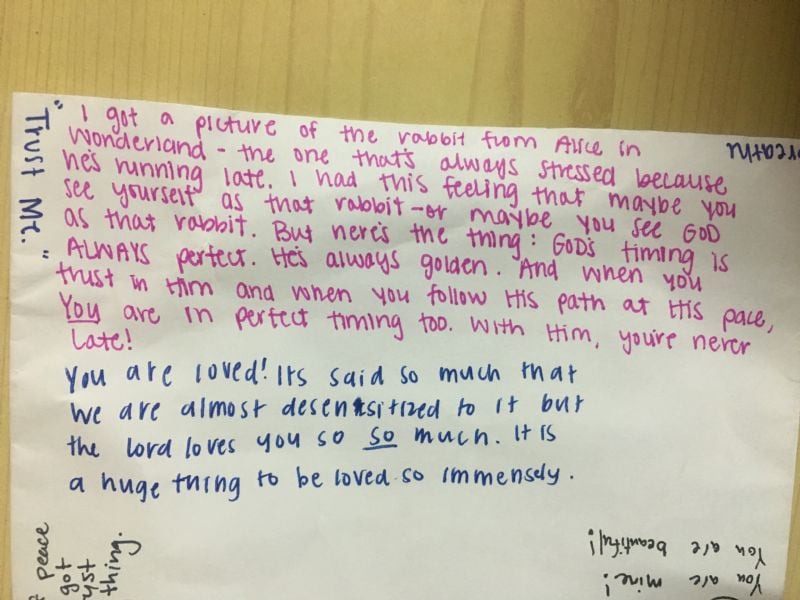 I got a picture of the rabbit from Alice in
Wonderland - the one that's always stressed because
he's running late. I had this feeling that maybe you
see yourself as that rabbit - or maybe you see GOD
as that rabbit. But here's the thing: GOD's timing is
ALWAYS perfect. He's always golden. And when you
trust in Him and when you follow His path at His pace,
YOU are in perfect timing too. With Him, you're never
Late!
You are loved! Its said so much that
we are almost desensitized to it but
the Lord loves you so so much. It is
a huge thing to be loved so immensely.
"Trust Me."
You are mine!
You are beautiful!
peace
got
thing.